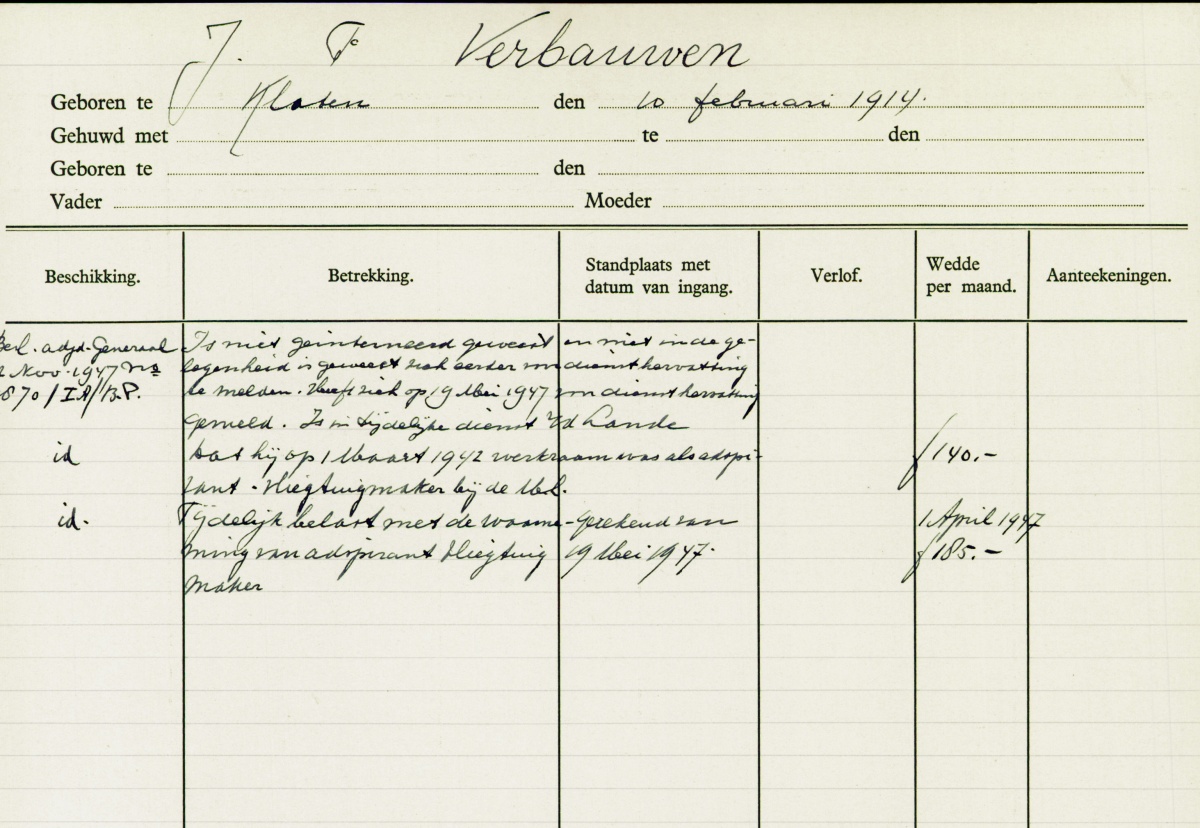 J. F Verbauwen
Geboren te Klaten den 10 februari 1914.
Gehuwd met te den
Geboren te den
Vader Moeder
Beschikking. Betrekking. Standplaats met datum van ingang. Verlof. Wedde per maand. Aanteekeningen.
Besl. adjd. Generaal Is niet geinterneerd geweest en niet in de ge-
Nov. 1947 No legenheid is geweest zich eerder voor diensthervatting
870/IA/B.P. te melden. Heeft zich op 19 Mei 1947 voor diensthervatting
gemeld. Is in tijdelijke dienst v/d Lande
id Dat hij op 1 Maart 1942 werkzaam was als adspi- f 140.-
rant-vliegtuigmaker bij de Mil.
id. Tijdelijk belast met de waarne- Gerekend van 1 April 1947
ming van adspirant vliegtuig 19 Mei 1947. f 185.-
maker